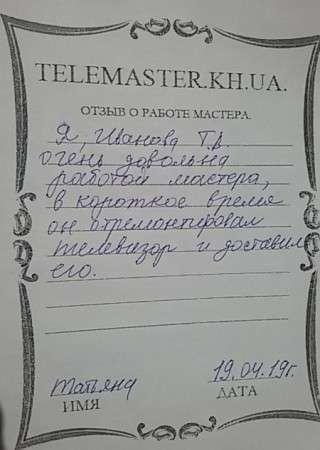 TELEMASTER.KH.UA.
ОТЗЫВ О РАБОТЕ МАСТЕРА.
Я, Иванова Т.А.
очень довольна
работой мастера,
в короткое время
он отремонтировал
телевизор и доставил
его.
Татьяна 19.04.19г.
ИМЯ ДАТА